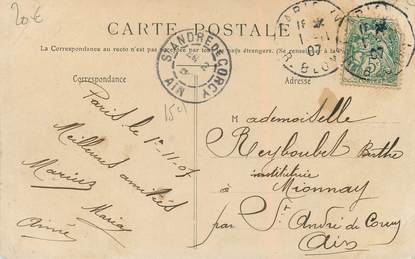 20€
CARTE POSTALE
La Correspondance au recto n'est pas acceptée par tous pays étrangers. (Se renseigner à la
Correspondance
Adresse
St ANDRÉ DE CORCY
AIN
PARIS
07
R. BLEUE
15 01
Paris le 1-11-07
Meilleures amitiés
Marius
Maria
Aimée
Mademoiselle
Reyboubet Berthe
institutrice
à Mionnay
par St André de Corcy
Ain